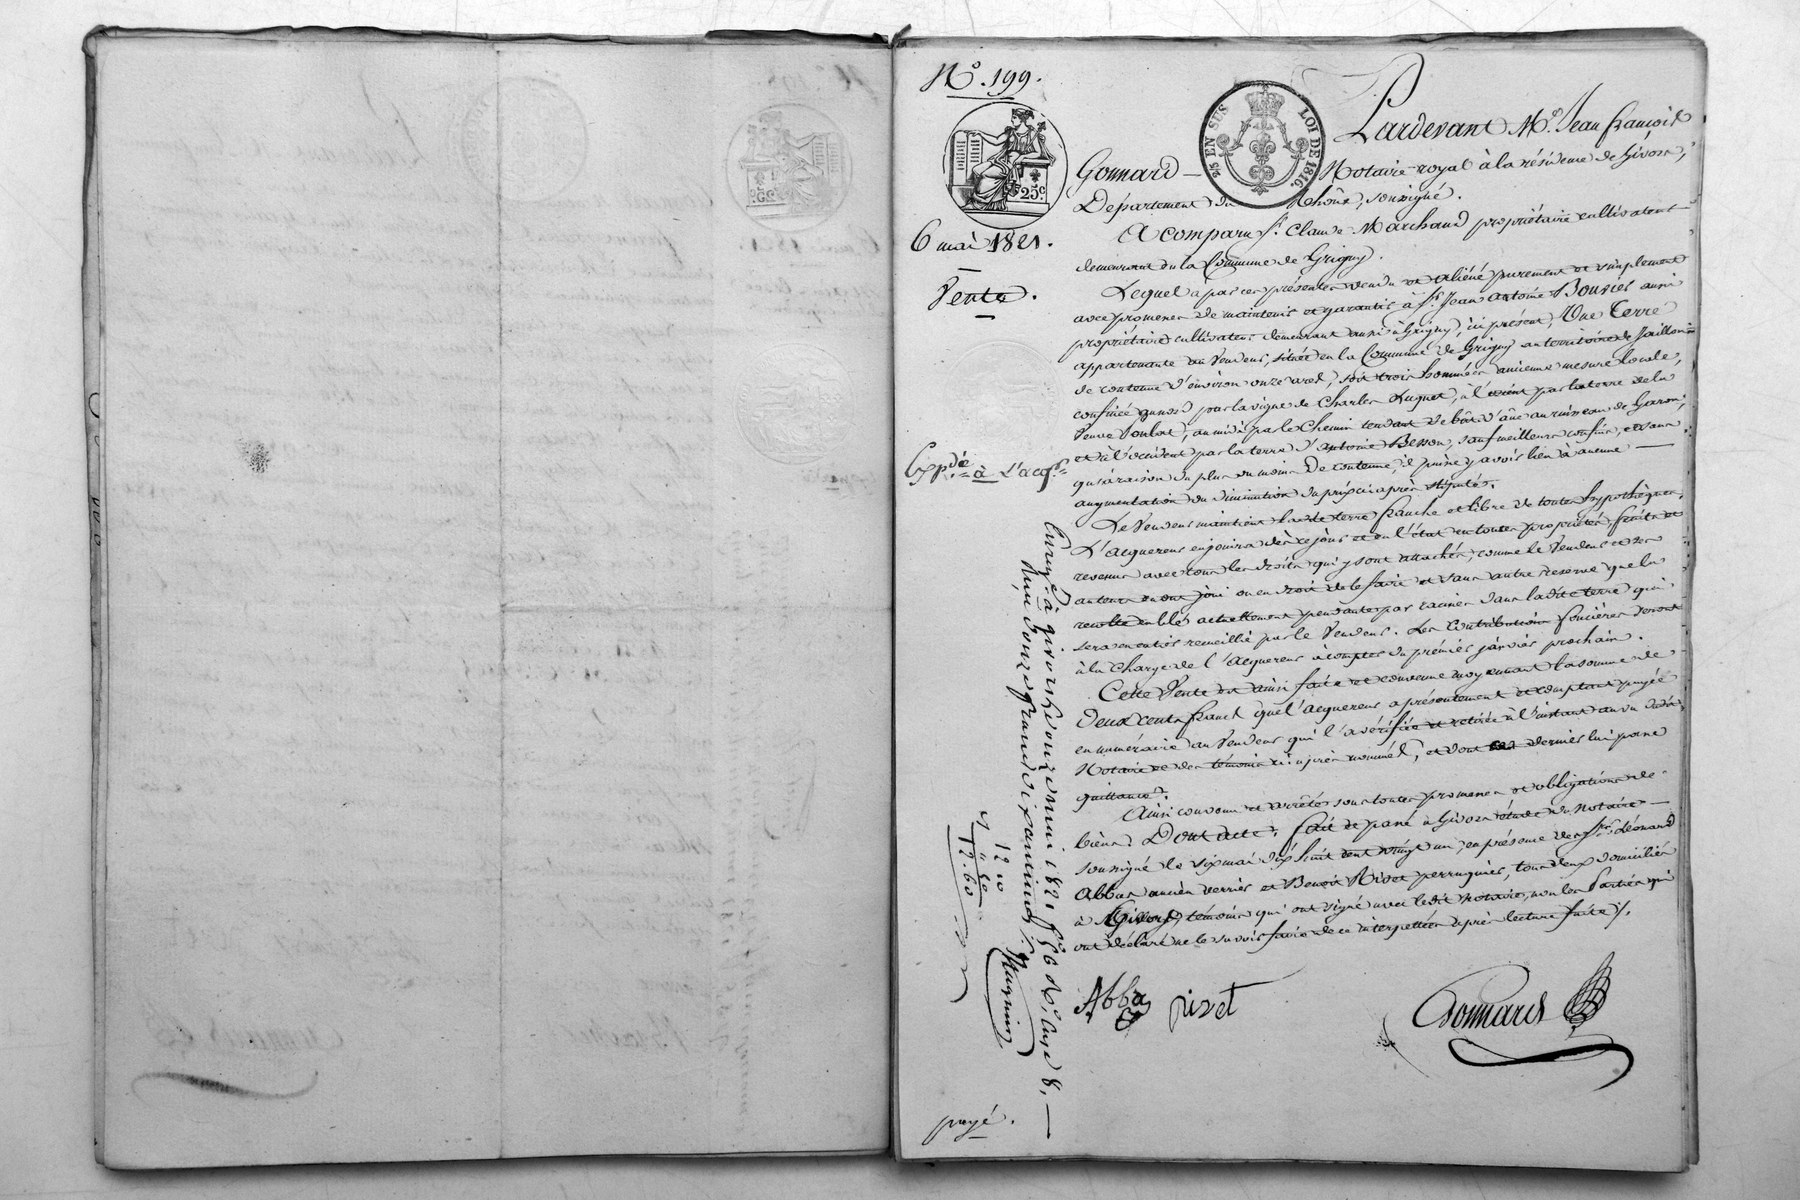 N.º 199.
2/5 EN SUS
LOI DE 1816.
25c
6 mai 1821.
Vente.
Expée à L'acqr
Pardevant Me. Jean françois
Gonnard Notaire royal à la résidence de Givors,
Département du Rhône, soussigné.
A comparu Sr. Claude Marchand propriétaire cultivateur
demeurant en la Commune de Grigny.
Lequel a par ces présentes vendu et aliéné purement et simplement
avec promesse de maintenir et garantir à Sr. Jean Antoine Bouvier aussi
propriétaire cultivateur demeurant aussi à Grigny, ici présent, Une Terre
appartenante au Vendeur, située en la Commune de Grigny au territoire de
de contenue d'environ onze ares, soit trois hommées ancienne mesure locale,
confinée au nord par la vigne de Charles Luquet, à l'orient par la terre de la
Veuve, au midi par le Chemin tendant de bât d'âne au ruisseau de Garon,
et à l'occident par la terre d'Antoine Besson, sauf meilleurs confins, et sans
qu'à raison du plus ou moins de contenue, il puisse y avoir lieu à aucune
augmentation ou diminution du prix ci après stipulés.
Le Vendeur maintient ladite terre franche et libre de toutes hypothèques,
L'acquereur en jouira dès ce jour et en l'état en toutes propriétés, fruits et
revenus avec tous les droits qui y sont attachés, comme le Vendeur et ses
auteurs en ont joui ou eu droit de le faire et sans autre réserve que la
recolte en blé actuellement pendante par racines dans la dite terre qui
sera en entier recueillie par le Vendeur. Les Contributions foncières seront
à la charge de l'acquereur à compter du prémier janvier prochain.
Cette Vente est ainsi faite et convenue moyennant la somme de
Deux cents francs que l'acquereur a présentement et comptant payée
en numéraire au Vendeur qui l'a vérifiée et retirée à l'instant au vu dudit
Notaire et des témoins ci après nommés, et dont ce dernier lui passe
quittance.
Ainsi convenu et arrêté sous toutes promesses et obligations de
biens. Dont acte, fait et passé à Givors étude du Notaire
soussigné le six mai dix huit cent vingt un, en présence des Srs. Léonard
Abbas ancien verrier et Benoit Rivet perruquier, tous deux domiciliés
à Givors, témoins qui ont signé avec ledit notaire, non les parties qui
ont déclaré ne le savoir faire de ce interpellées après lecture faite.
Abbas
Gonnard
Enregé. à givors le onze mai 1821 fo. 56 Ro. case 8.
Reçu douze francs dix centimes
12 10
12. 60
payé.